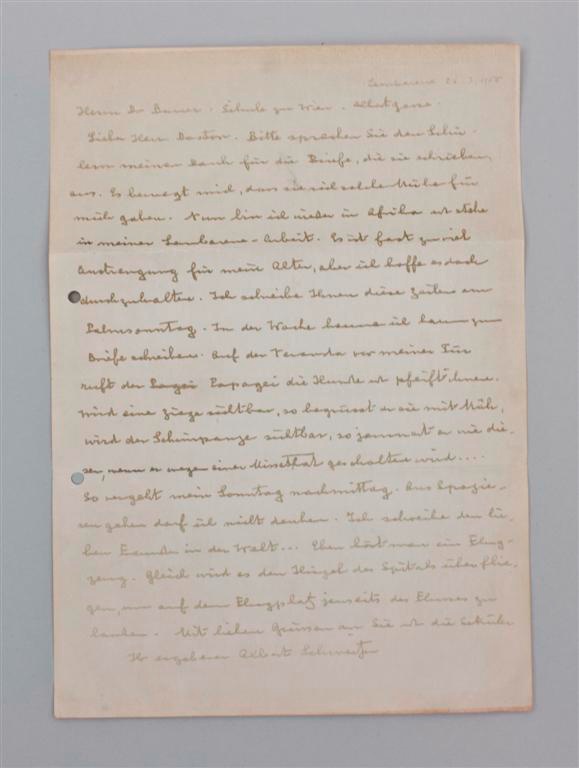 Lambarene
Herrn Dr Bauer. Schule zu Wien. Albertgasse.
Lieber Herr Doctor. Bitte sprechen Sie den Schü-
lern meinen Dank für die Briefe, die sie schrieben,
aus. Es bewegt mich, dass sie sich solche Mühe für
mich gaben. Nun bin ich wieder in Afrika u stehe
in meiner Lambarene-Arbeit. Es ist fast zu viel
Anstrengung für mein Alter, aber ich hoffe es doch
durchzuhalten. Ich schreibe Ihnen diese Zeilen am
Palmsonntag. In der Woche komme ich kaum zum
Briefe schreiben. Auf der Veranda vor meiner Tür
ruft der Papagei die Hunde u pfeift ihnen.
Wird eine Ziege sichtbar, so begrüsst er sie mit Müh,
wird der Schimpanze sichtbar, so jammert er wie die-
ser, wenn er wegen einer Missethat gescholten wird....
So vergeht mein Sonntag nachmittag. Ans Spazie-
rengehen darf ich nicht denken. Ich schreibe den lie-
ben Freunden in der Welt... Eben hört man ein Flug-
zeug. Gleich wird es den Hügel des Spitals überflie-
gen, um auf dem Flugplatz jenseits des Flusses zu
landen. Mit lieben Grüssen an Sie u die Schüler
Ihr ergebener Albert Schweitzer